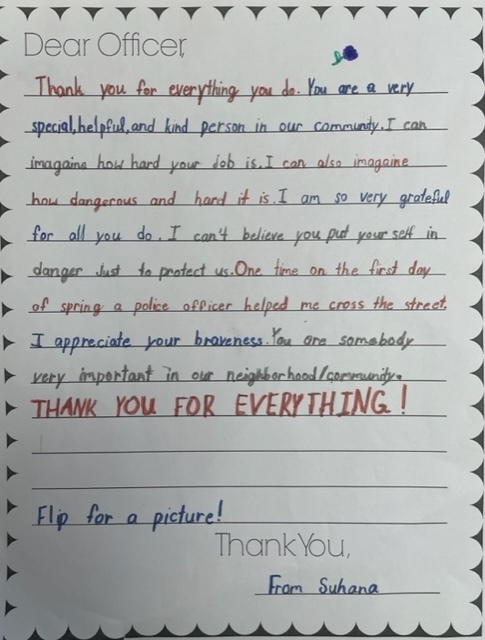 Dear Officer,
Thank you for everything you do. You are a very
special,helpful,and kind person in our community.I can
imagaine how hard your Job is.I can also imagaine
how dangerous and hard it is.I am so very grateful
for all you do. I can't believe you put your self in
danger Just to protect us.One time on the first day
of spring a police officer helped me cross the street.
I appreciate your braveness.You are somebody
very important in our neighborhood/community.
THANK YOU FOR EVERYTHING!
Flip for a picture!
Thank You,
From Suhana